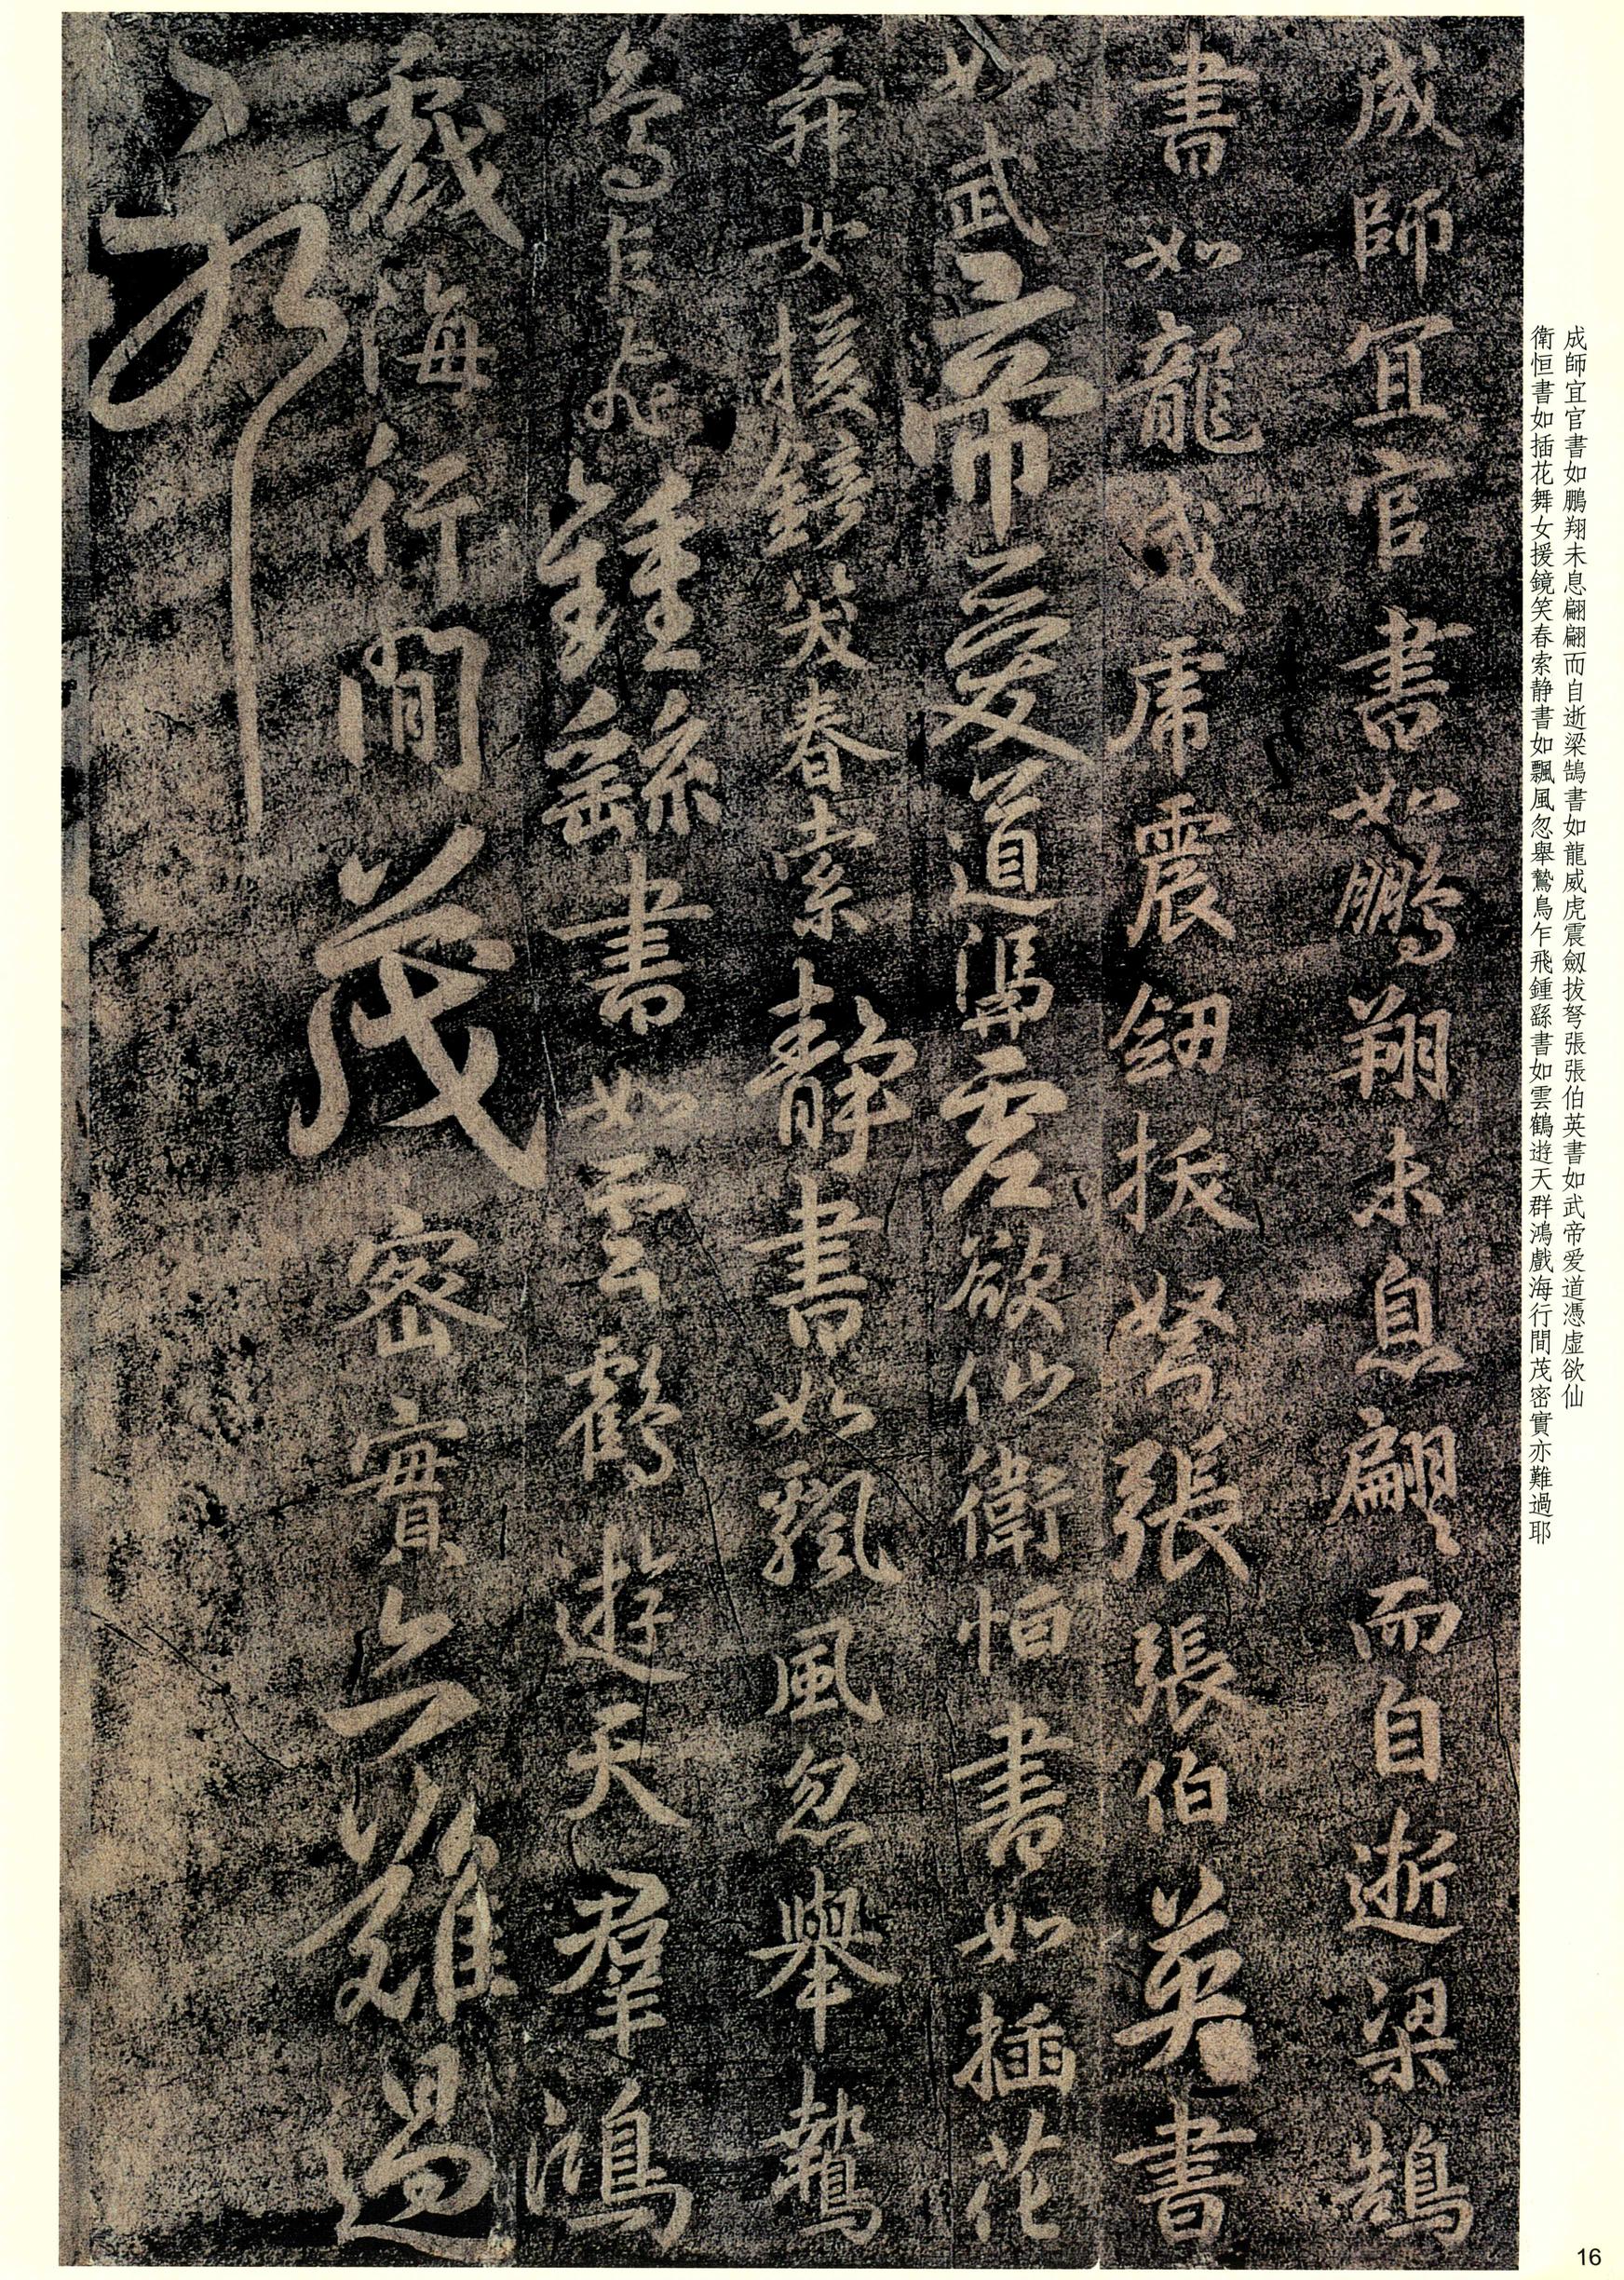 成師宜官書如鵬翔未息翩〻而自逝梁鵠
書如龍威虎震劔拔弩張張伯英書
如武帝愛道馮虛欲仙衛恒書如插花
舞女援鏡笑春索靜書如飄風忽舉鷙
鳥乍飛鍾繇書如雲鶴遊天羣鴻
戲海行間茂密實亦難過
耶
成師宜官書如鵬翔未息翩翩而自逝梁鵠書如龍威虎震劔拔弩張張伯英書如武帝爱道憑虚欲仙
衛恒書如插花舞女援鏡笑春索静書如飄風忽舉鷙鳥乍飛鍾繇書如雲鶴遊天群鴻戲海行間茂密實亦難過耶
16